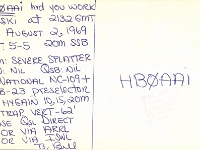 HBØAAi hrd you work
SKI at 2132 GMT
AUGUST 2, 1969
5-5 20M SSB
M: SEVERE SPLATTER
NIL QSB: NIL
NATIONAL NC-109+
B-23 preselector
HYGAIN 10,15,20M
TRAP VERT-62'
SE QSL DIRECT
OR VIA ARRL
OR VIA ISWL
HBØAAi